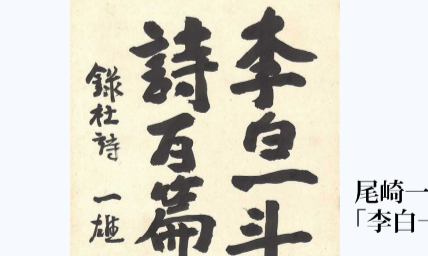 李白一斗
詩百篇
録杜詩 一雄
尾崎一
「李白一